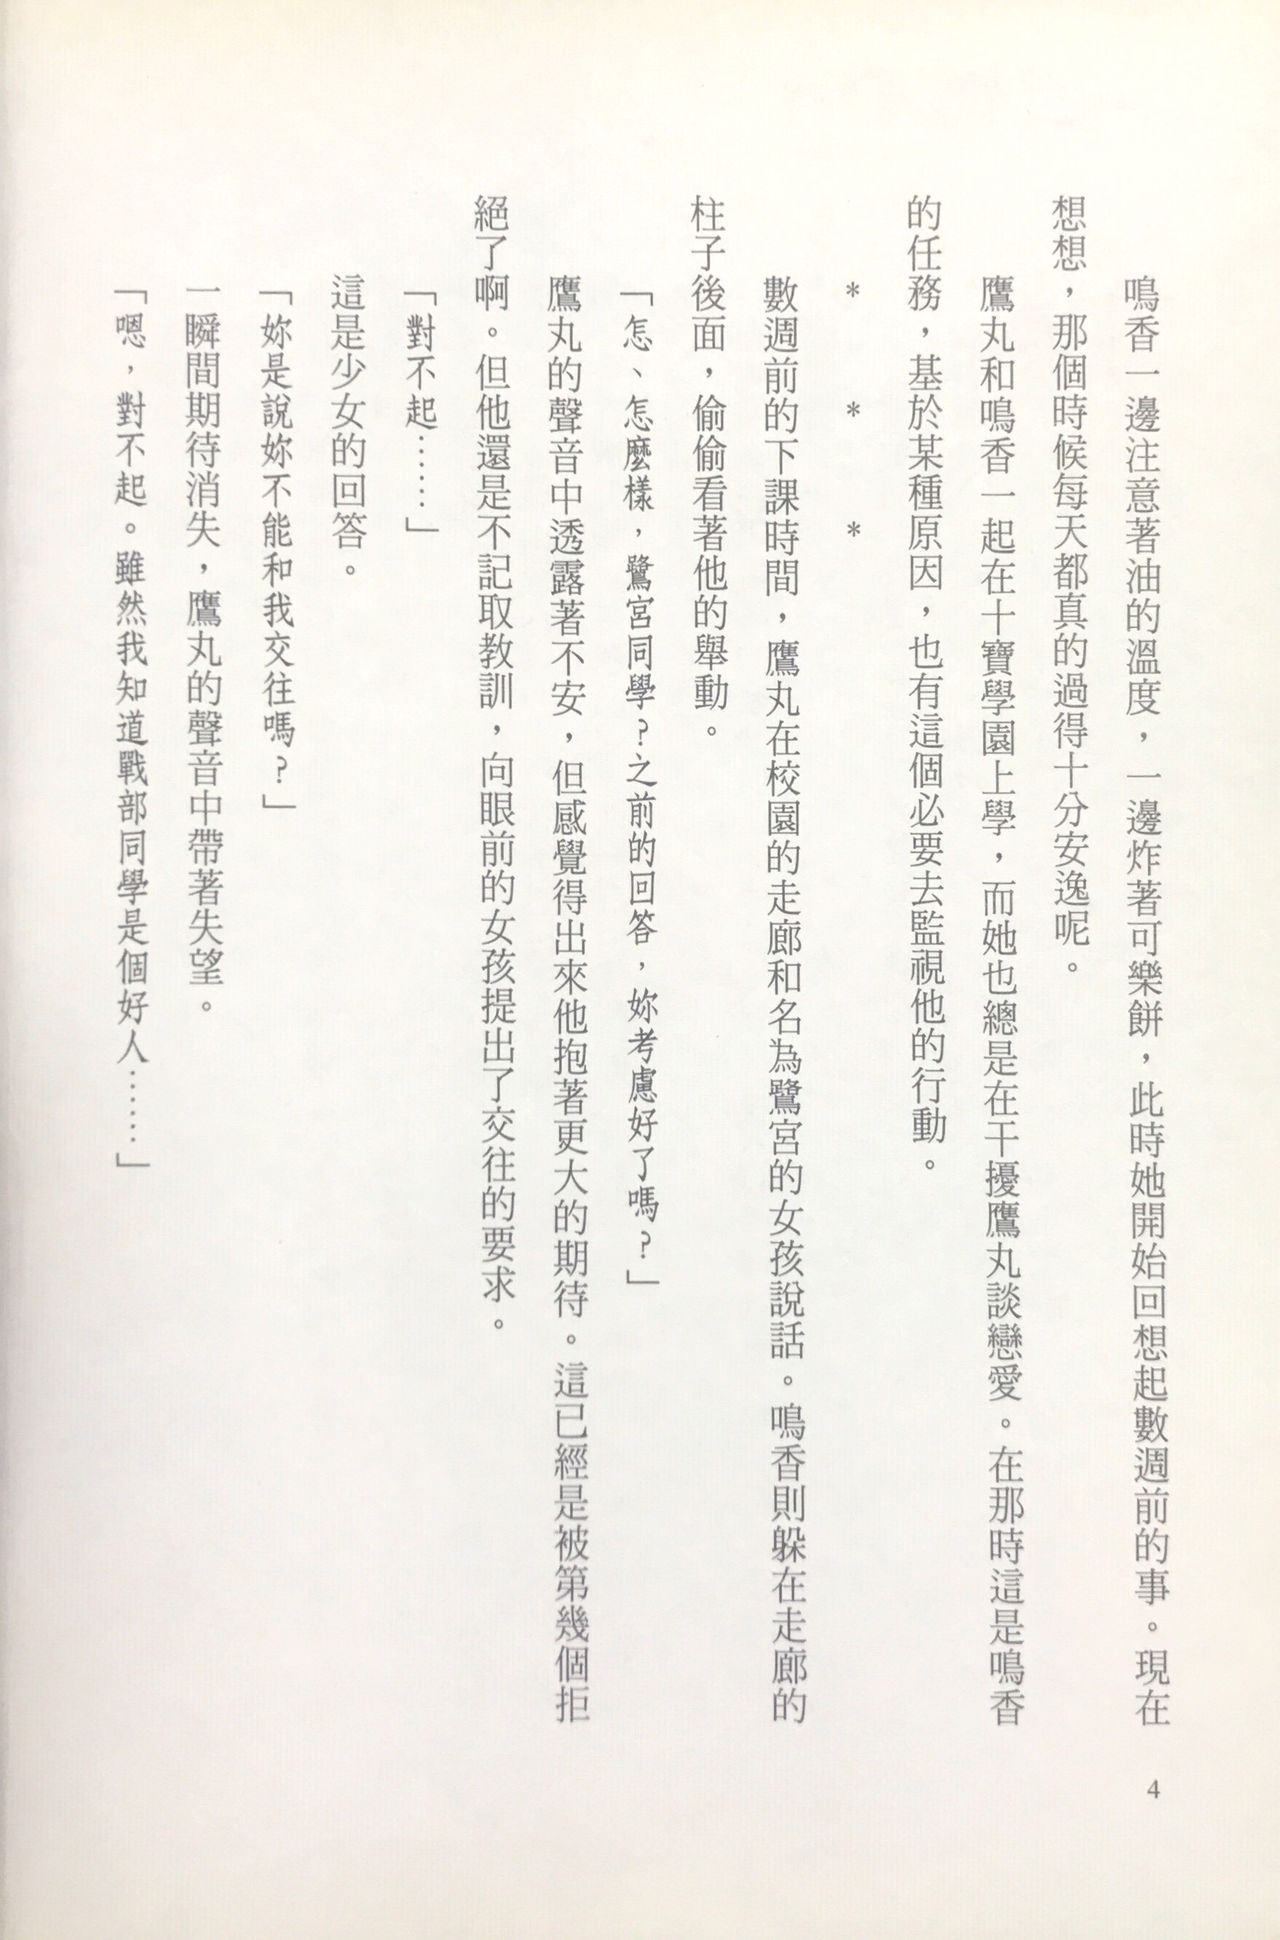 鳴香一邊注意著油的溫度，一邊炸著可樂餅，此時她開始回想起數週前的事。現在
想想，那個時候每天都真的過得十分安逸呢。
鷹丸和鳴香一起在十寶學園上學，而她也總是在干擾鷹丸談戀愛。在那時這是鳴香
的任務，基於某種原因，也有這個必要去監視他的行動。
＊　＊　＊
數週前的下課時間，鷹丸在校園的走廊和名為鷺宮的女孩說話。鳴香則躲在走廊的
柱子後面，偷偷看著他的舉動。
「怎、怎麼樣，鷺宮同學？之前的回答，妳考慮好了嗎？」
鷹丸的聲音中透露著不安，但感覺得出來他抱著更大的期待。這已經是被第幾個拒
絕了啊。但他還是不記取教訓，向眼前的女孩提出了交往的要求。
「對不起……」
這是少女的回答。
「妳是說妳不能和我交往嗎？」
一瞬間期待消失，鷹丸的聲音中帶著失望。
「嗯，對不起。雖然我知道戰部同學是個好人……」
4